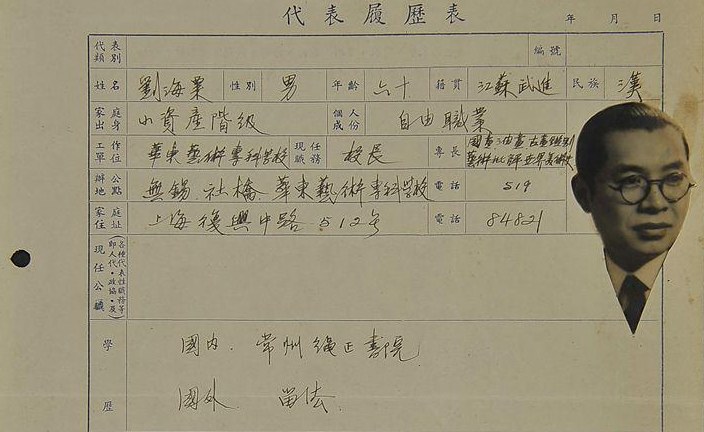 代表履歷表
年 月 日
代表類別 編號
姓名 劉海粟 性別 男 年齡 六十 籍貫 江蘇武進 民族 漢
家庭出身 小資產階級 個人成份 自由職業
工作單位 華東藝術專科學校 現任職務 校長 專長 國畫 油畫 古畫鑑別
藝術批評 世界美術史
辦公地點 無錫 社橋 華東藝術專科學校 電話 519
家庭住址 上海復興中路512号 電話 84821
現任公職（各種代表性職務等即人代、政協、及）
學歷
國内. 常州绳正書院
國外 留法.